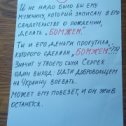 И не надо было бы ему
мужчину, который записан в его
свидетельстве о рождении,
делать „БОМЖЕМ".
Ты и его деньги прогуляла,
которого сделала „БОМЖЕМ"???
Значит у твоего сына Сергея
один выход, идти добровольцем
на Украину воевать.
Может ему повезёт, и он жив
останется.